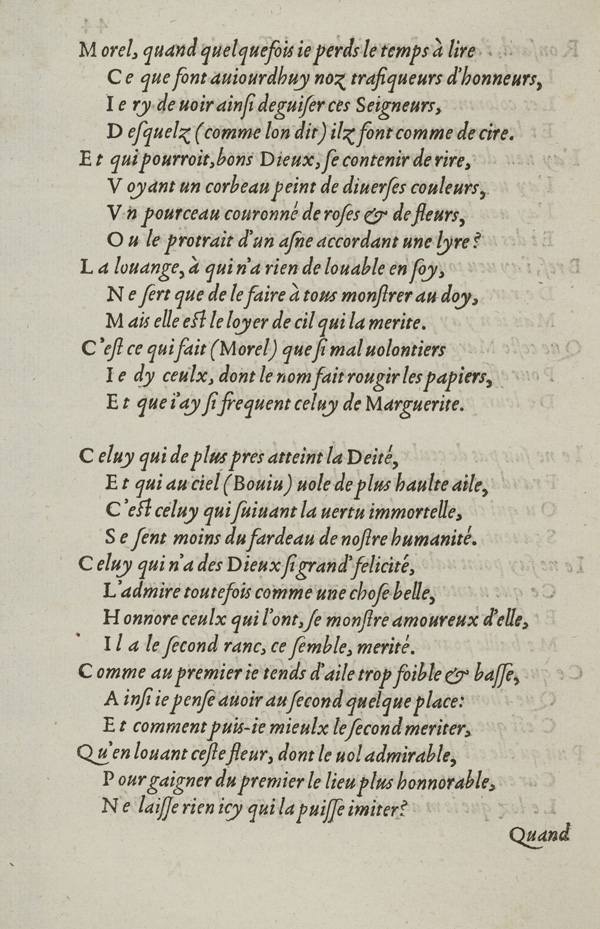 Morel, quand quelquefois ie perds le temps à lire
Ce que font auiourdhuy noz trafiqueurs d'honneurs,
Ie ry de uoir ainſi deguiſer ces Seigneurs,
Deſquelz (comme lon dit) ilz font comme de cire.
Et qui pourroit, bons Dieux, ſe contenir de rire,
Voyant un corbeau peint de diuerſes couleurs,
Vn pourceau couronné de roſes & de fleurs,
Ou le protrait d'un aſne accordant une lyre?
La louange, à qui n'a rien de louable en ſoy,
Ne ſert que de le faire à tous monſtrer au doy,
Mais elle eſt le loyer de cil qui la merite.
C'eſt ce qui fait (Morel) que ſi mal uolontiers
Ie dy ceulx, dont le nom fait rougir les papiers,
Et que i'ay ſi frequent celuy de Marguerite.
Celuy qui de plus pres atteint la Deité,
Et qui au ciel (Bouiu) uole de plus haulte aile,
C'eſt celuy qui ſuiuant la uertu immortelle,
Se ſent moins du fardeau de noſtre humanité.
Celuy qui n'a des Dieux ſi grand' felicité,
L'admire toutefois comme une choſe belle,
Honnore ceulx qui l'ont, ſe monſtre amoureux d'elle,
Il a le ſecond ranc, ce ſemble, merité.
Comme au premier ie tends d'aile trop foible & baſſe,
Ainſi ie penſe auoir au ſecond quelque place:
Et comment puis-ie mieulx le ſecond meriter,
Qu'en louant ceſte fleur, dont le uol admirable,
Pour gaigner du premier le lieu plus honnorable,
Ne laiſſe rien icy qui la puiſſe imiter?
Quand